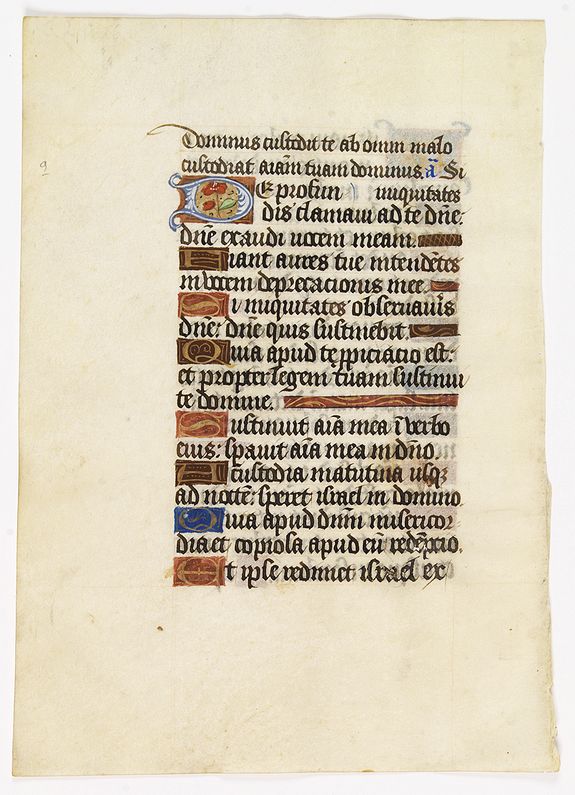 Dominus custodit te ab omni malo
custodiat aīam tuam dominus. ā Si
De profun iniquitates
dis clamaui ad te dñe:
dñe exaudi uocem meam.
Fiant aures tue intendētes
in vocem deprecationis mee.
Si iniquitates obseruaūis
dñe: dñe quis sustinebit.
Quia apud te ꝓpiciacio est:
et propter legem tuam sustinui
te domine.
Sustinuit aīa mea ī verbo
eius: sꝑauit aīa mea in dño.
A custodia matutina usqꝫ
ad noctē: speret israel in domino.
Quia apud dnm̄ misericor
dia et copiosa apud eū redēpcio.
Et ipse redimet israel ex
9